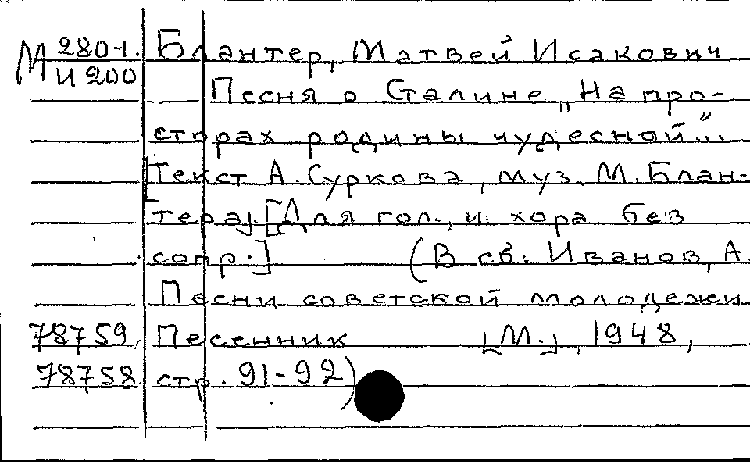 М 280-1. Блантер, Матвей Исакович
И 200
Песня о Сталине „На про-
сторах родины чудесной"..
[Текст А. Суркова, муз. М. Блан-
тера]. [Для гол., и хора без
сопр.] (В сб.: Иванов, А.
Песни советской молодежи
78759 Песенник [М.], 1948,
78758 стр. 91-92)